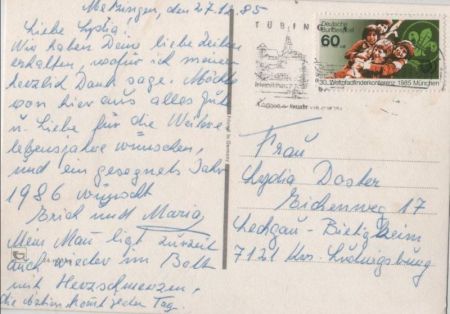 Metzingen, den 27.12.85
Liebe Lydia.
Wir haben Deine liebe Zeilen
erhalten, wofür ich meinen
herzlich Dank sage. Möchte
von hier aus alles Gute
u. Liebe für die Weitere
lebensjahre wünschen,
und ein gesegnets Jahr
1986 wünscht
Erich und Maria
Mein Mau liegt zurzeit
auch wieder im Bett
mit Herzschmerzen,
die komt jeder Tag.
TÜBIN
Deutsche
Bundespost
60
30. Weltpfadfinderkonferenz 1985 München
Frau
Lydia Doster
Eichenweg 17
Lechgau-Bietigheim
7121 Krs. Ludwigsburg